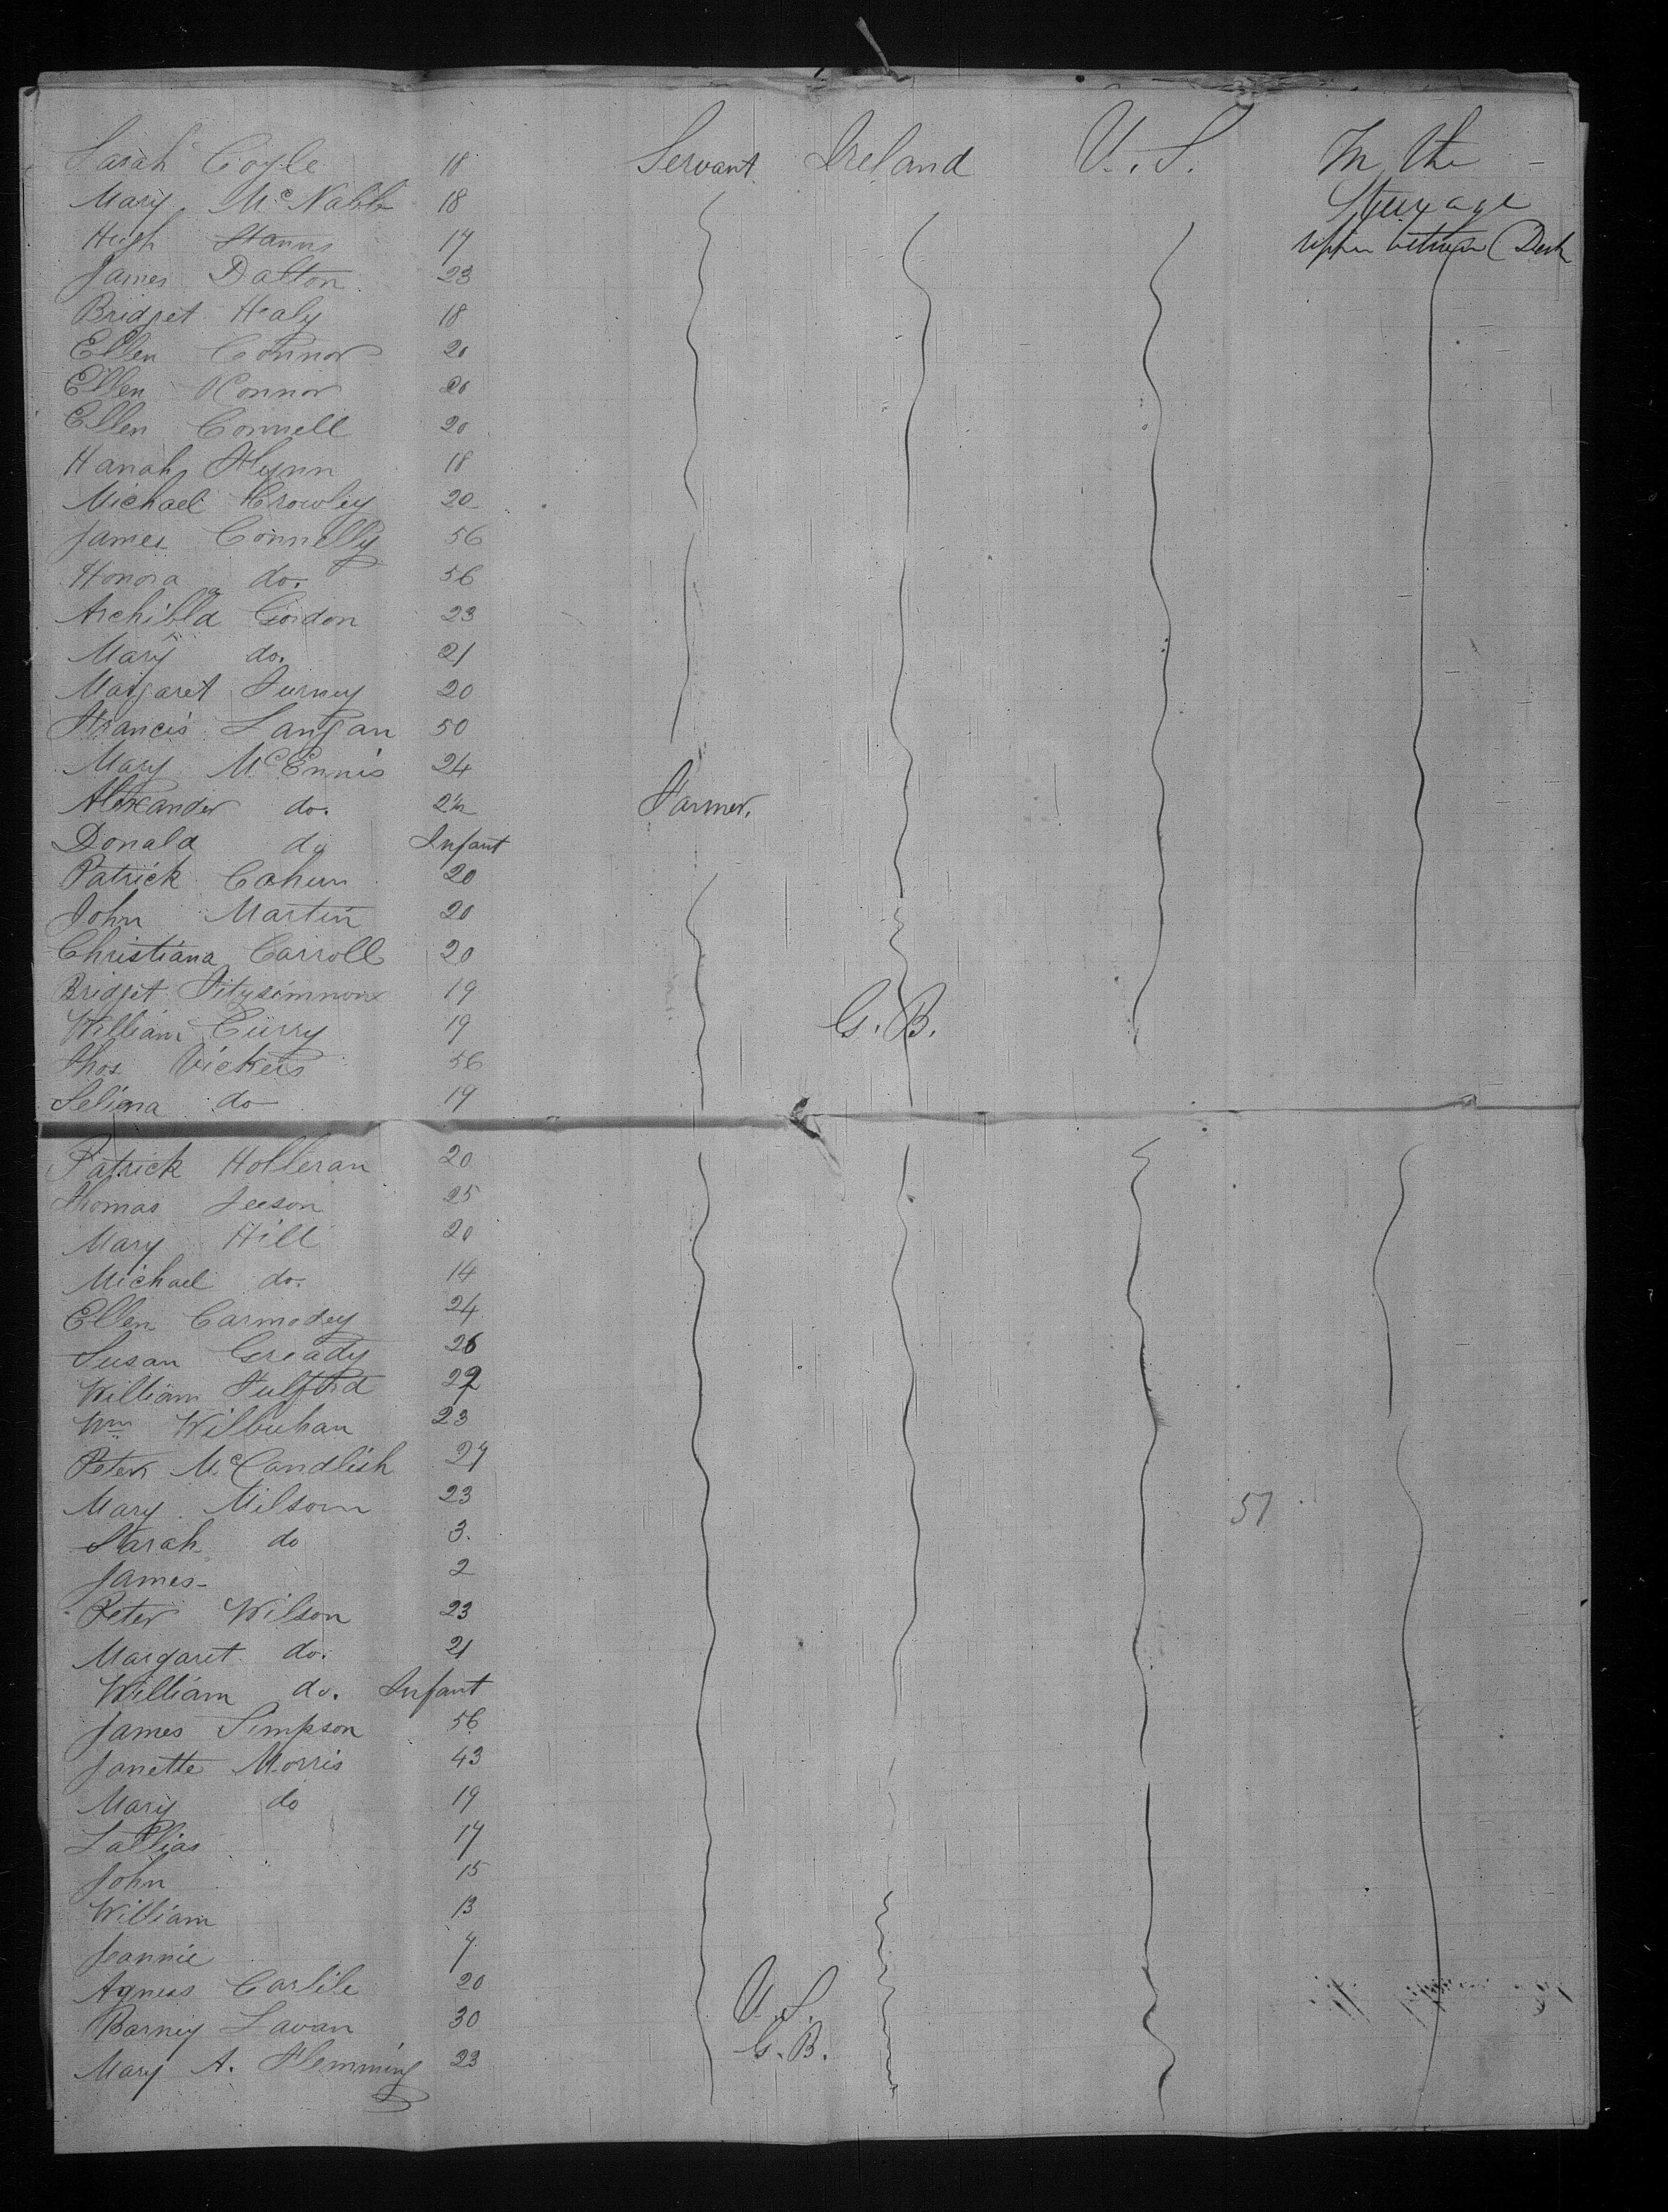 Sarah Coyle 18 Servant Ireland U.S. In the
Mary McNabb 18 Steerage
Hugh 17 upper between Deck
James Dalton 23
Bridget Healy 18
Ellen Connor 20
Ellen OConnor 20
Ellen Connell 20
Hanah Flynn 18
Michael Crowley 20
James Connelly 56
Honora do. 56
Archibld Gordon 23
Mary do. 21
Margaret Furney 20
Francis Langan 50
Mary McEnnis 24
Alexander do. 2½ Farmer.
Donald do Infant
Patrick Cahun 20
John Martin 20
Christiana Carroll 20
Bridget Fitzsimmons 19
William Curry 19 G.B.
Thos Vickers 56
Selina do 19
Patrick Holleran 20
Thomas Jeeson 25
Mary Hill 20
Michael do. 14
Ellen Carmodey 24
Susan Gready 26
William Fulford 22
Wm Wilbuhan 23
Peter McCandlish 27
Mary Milsom 23 57
Sarah do 3.
James 2
Peter Wilson 23
Margaret do. 21
William do. Infant
James Simpson 56
Janette Morris 43
Mary do 19
Lallias 17
John 15
William 13
Jeannie 7
Agness Carlile 20 U.S.
Barney Lavan 30 G.B.
Mary A. Flemming 23